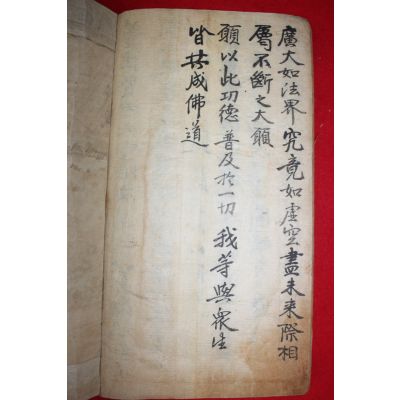 廣大如法界 究竟如虛空 盡未來際相
屬不斷之大願
願以此功德 普及於一切 我等與衆生
皆共成佛道